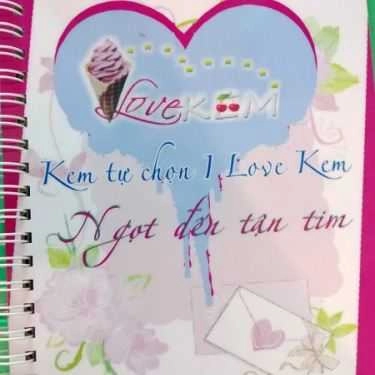 Love KEM
Kem tự chọn I Love Kem
Ngọt đến tận tim